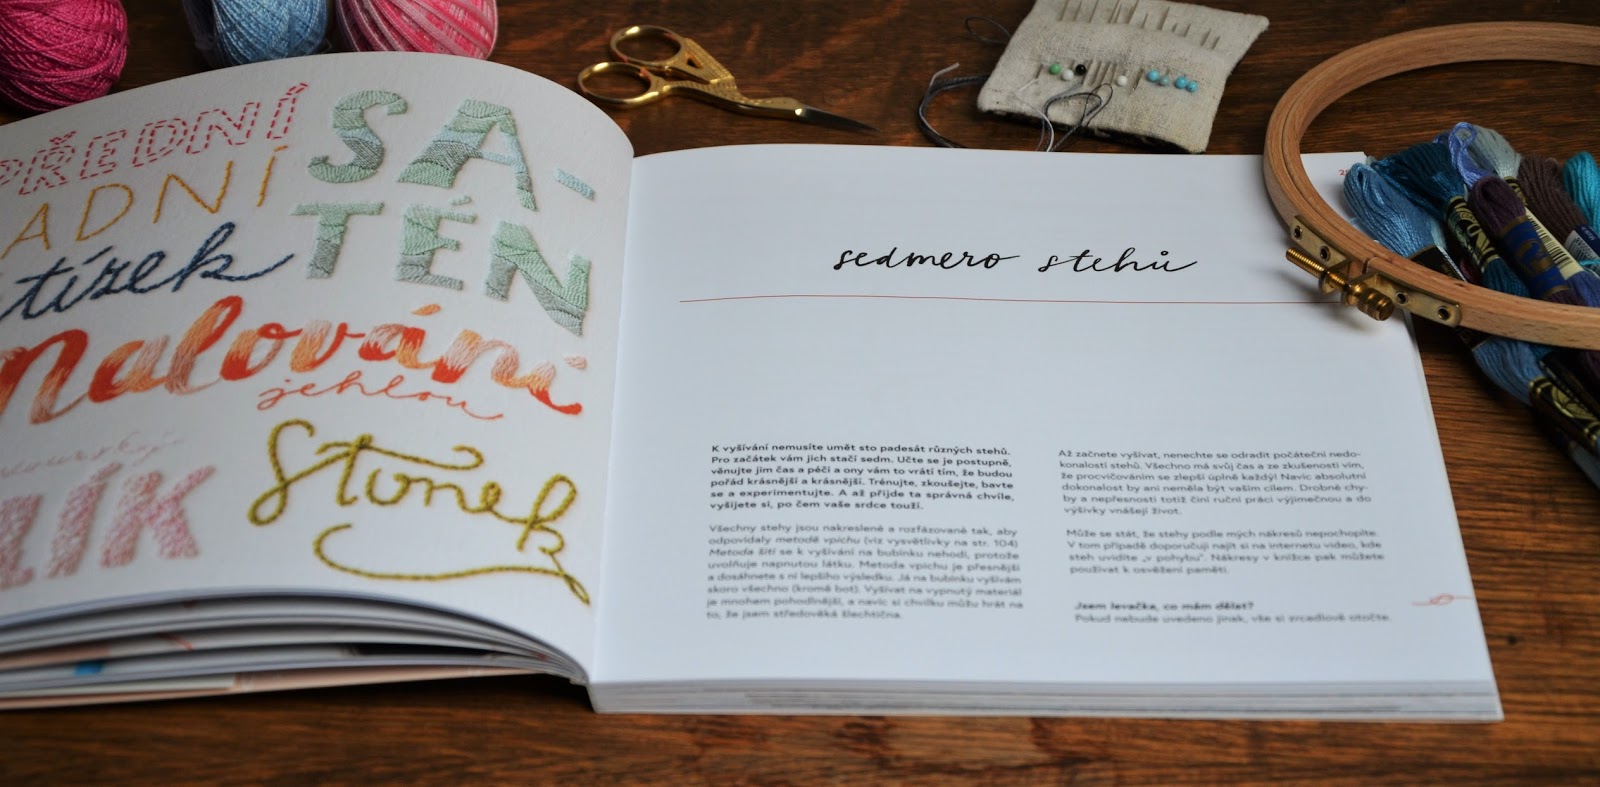 PŘEDNÍ
ADNÍ
SA-
TÉN
tízek
Malování
jehlou
Stonek
sedmero stehů
K vyšívání nemusíte umět sto padesát různých stehů.
Pro začátek vám jich stačí sedm. Učte se je postupně,
věnujte jim čas a péči a ony vám to vrátí tím, že budou
pořád krásnější a krásnější. Trénujte, zkoušejte, bavte
se a experimentujte. A až přijde ta správná chvíle,
vyšijete si, po čem vaše srdce touží.
Všechny stehy jsou nakreslené a rozfázované tak, aby
odpovídaly metodě vpichu (viz vysvětlivky na str. 104)
Metoda šití se k vyšívání na bubínku nehodí, protože
uvolňuje napnutou látku. Metoda vpichu je přesnější
a dosáhnete s ní lepšího výsledku. Já na bubínku vyšívám
skoro všechno (kromě bot). Vyšívat na vypnutý materiál
je mnohem pohodlnější, a navíc si chvilku můžu hrát na
to, že jsem středověká šlechtična.
Až začnete vyšívat, nenechte se odradit počáteční nedo-
konalostí stehů. Všechno má svůj čas a ze zkušenosti vím,
že procvičováním se zlepší úplně každý! Navíc absolutní
dokonalost by ani neměla být vaším cílem. Drobné chy-
by a nepřesnosti totiž činí ruční práci výjimečnou a do
výšivky vnášejí život.
Může se stát, že stehy podle mých nákresů nepochopíte.
V tom případě doporučuji najít si na internetu video, kde
steh uvidíte „v pohybu“. Nákresy v knížce pak můžete
používat k osvěžení paměti.
Jsem levačka, co mám dělat?
Pokud nebude uvedeno jinak, vše si zrcadlově otočte.